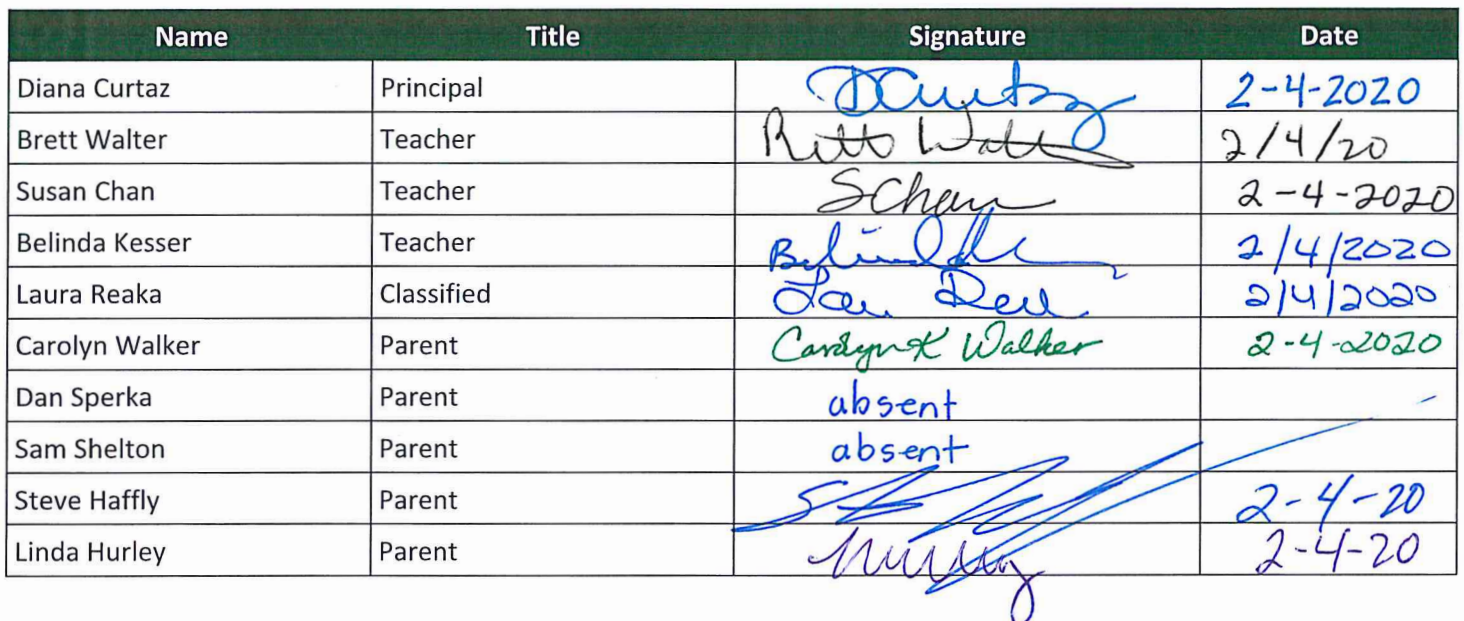 Name Title Signature Date
Diana Curtaz Principal DCurtaz 2-4-2020
Brett Walter Teacher 2/4/20
Susan Chan Teacher SChan 2-4-2020
Belinda Kesser Teacher 2/4/2020
Laura Reaka Classified 2/4/2020
Carolyn Walker Parent Carolyn K Walker 2-4-2020
Dan Sperka Parent absent
Sam Shelton Parent absent
Steve Haffly Parent 2-4-20
Linda Hurley Parent 2-4-20